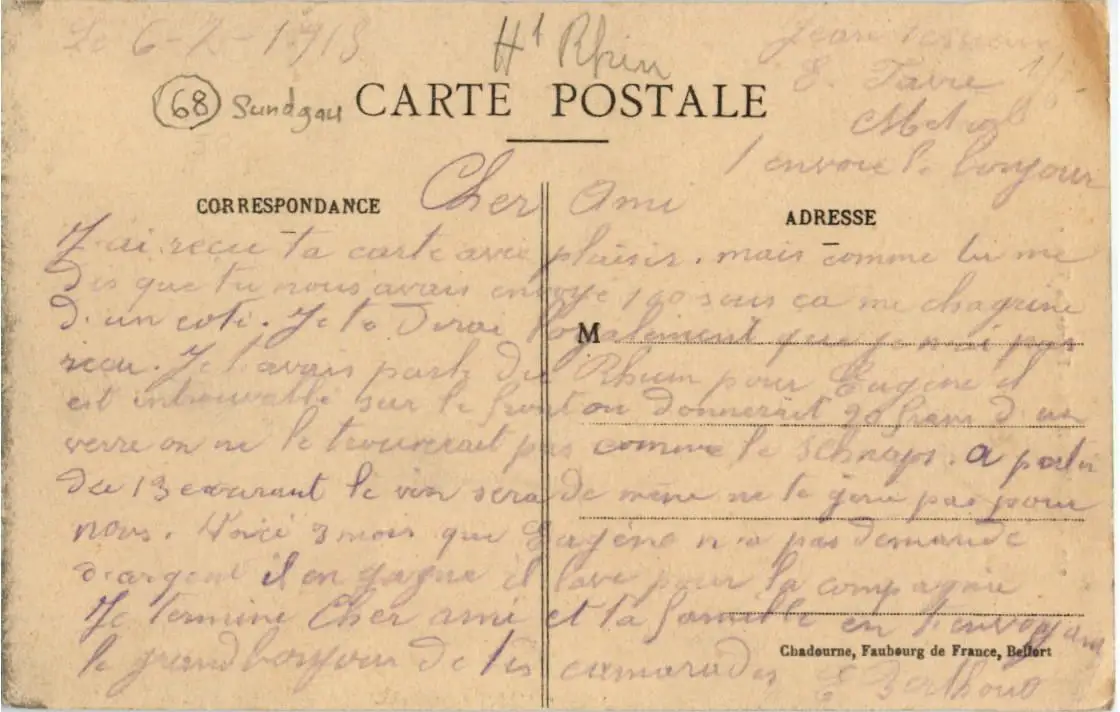 Le 6-7-1915
Ht Rhin
68 Sundgau
CARTE POSTALE
E. Favre
t envoie le bonjour
CORRESPONDANCE
ADRESSE
Cher Ami
J'ai recu ta carte avec plaisir. mais comme tu me
dis que tu nous avais envoye 100 sous ça me chagrine
d'un coté. Je te dirai loyalement que je n'ai pas
recu. Je t'avais parlé du Rhum pour Eugène il
est introuvable sur le front on donnerait 20 frans d'un
verre on ne le trouverait pas comme le schnaps. a partir
du 13 courant le vin sera de même ne te gene pas pour
nous. Voici 3 mois que Eugéne n'a pas demande
d'argent il en gagne il lave pour la compagnie
Je termine Cher ami et ta famille en t'envoyant
le grand bonjour de tes camarades E Berthoud
M
Chadourne, Faubourg de France, Belfort